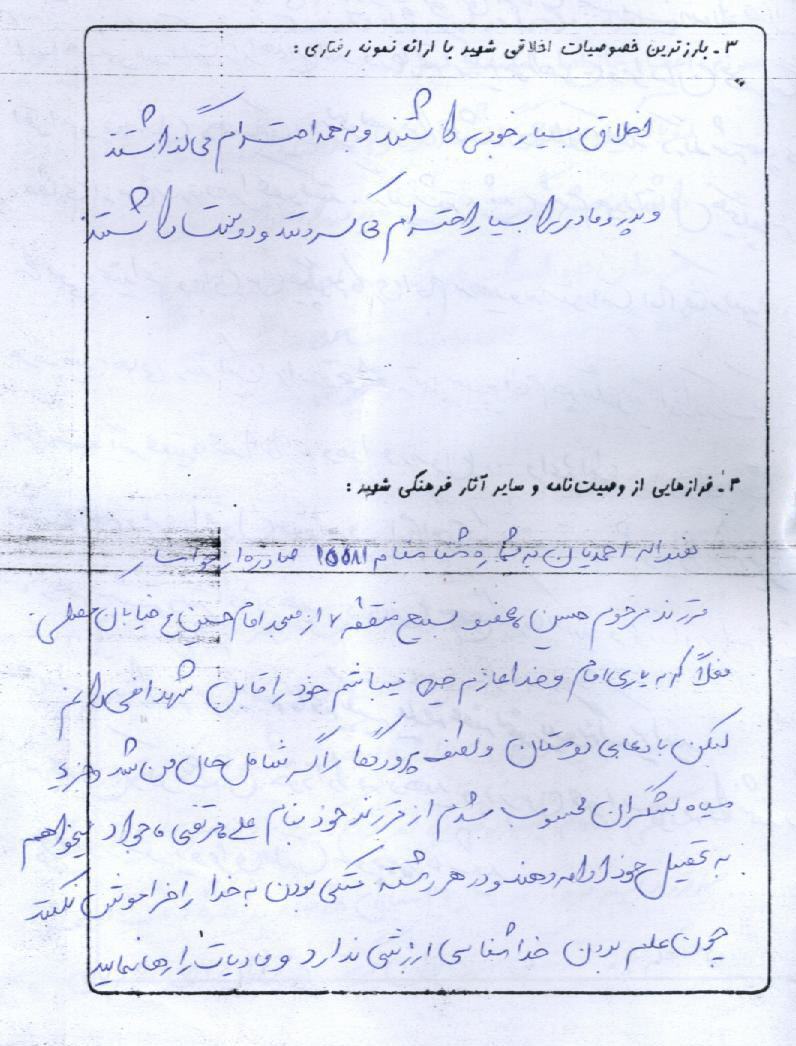 ۳ـ بارزترین خصوصیات اخلاقی شهید با ارائه نمونه رفتاری :
اخلاق بسیار خوبی داشتند و به همه احترام می گذاشتند
و پدر و مادر را بسیار احترام می کردند و دوست داشتند
۴ـ فرازهایی از وصیت‌نامه و سایر آثار فرهنگی شهید :
احمدیان به شماره شناسنامه ۱۵۵۸۱ صادره از خوانسار
فرزند مرحوم حسین ، عضو بسیج منطقه ۷ از مسجد امام حسین ع خیابان
فعلاً که به یاری امام و خدا عازم میباشم خود را قابل شهدا نمی دانم
لیکن با دعای دوستان و لطف پروردگار اگر شامل حال من شد و جزء
سپاه لشگران محسوب شدم از فرزند خود بنام علی ، مرتضی ، جواد میخواهم
به تحصیل خود ادامه دهند و در هر رشته متکی بودن به خدا را فراموش نکنند
چون علم بدون خداشناسی ارزشی ندارد و مادیات را رها نمایید